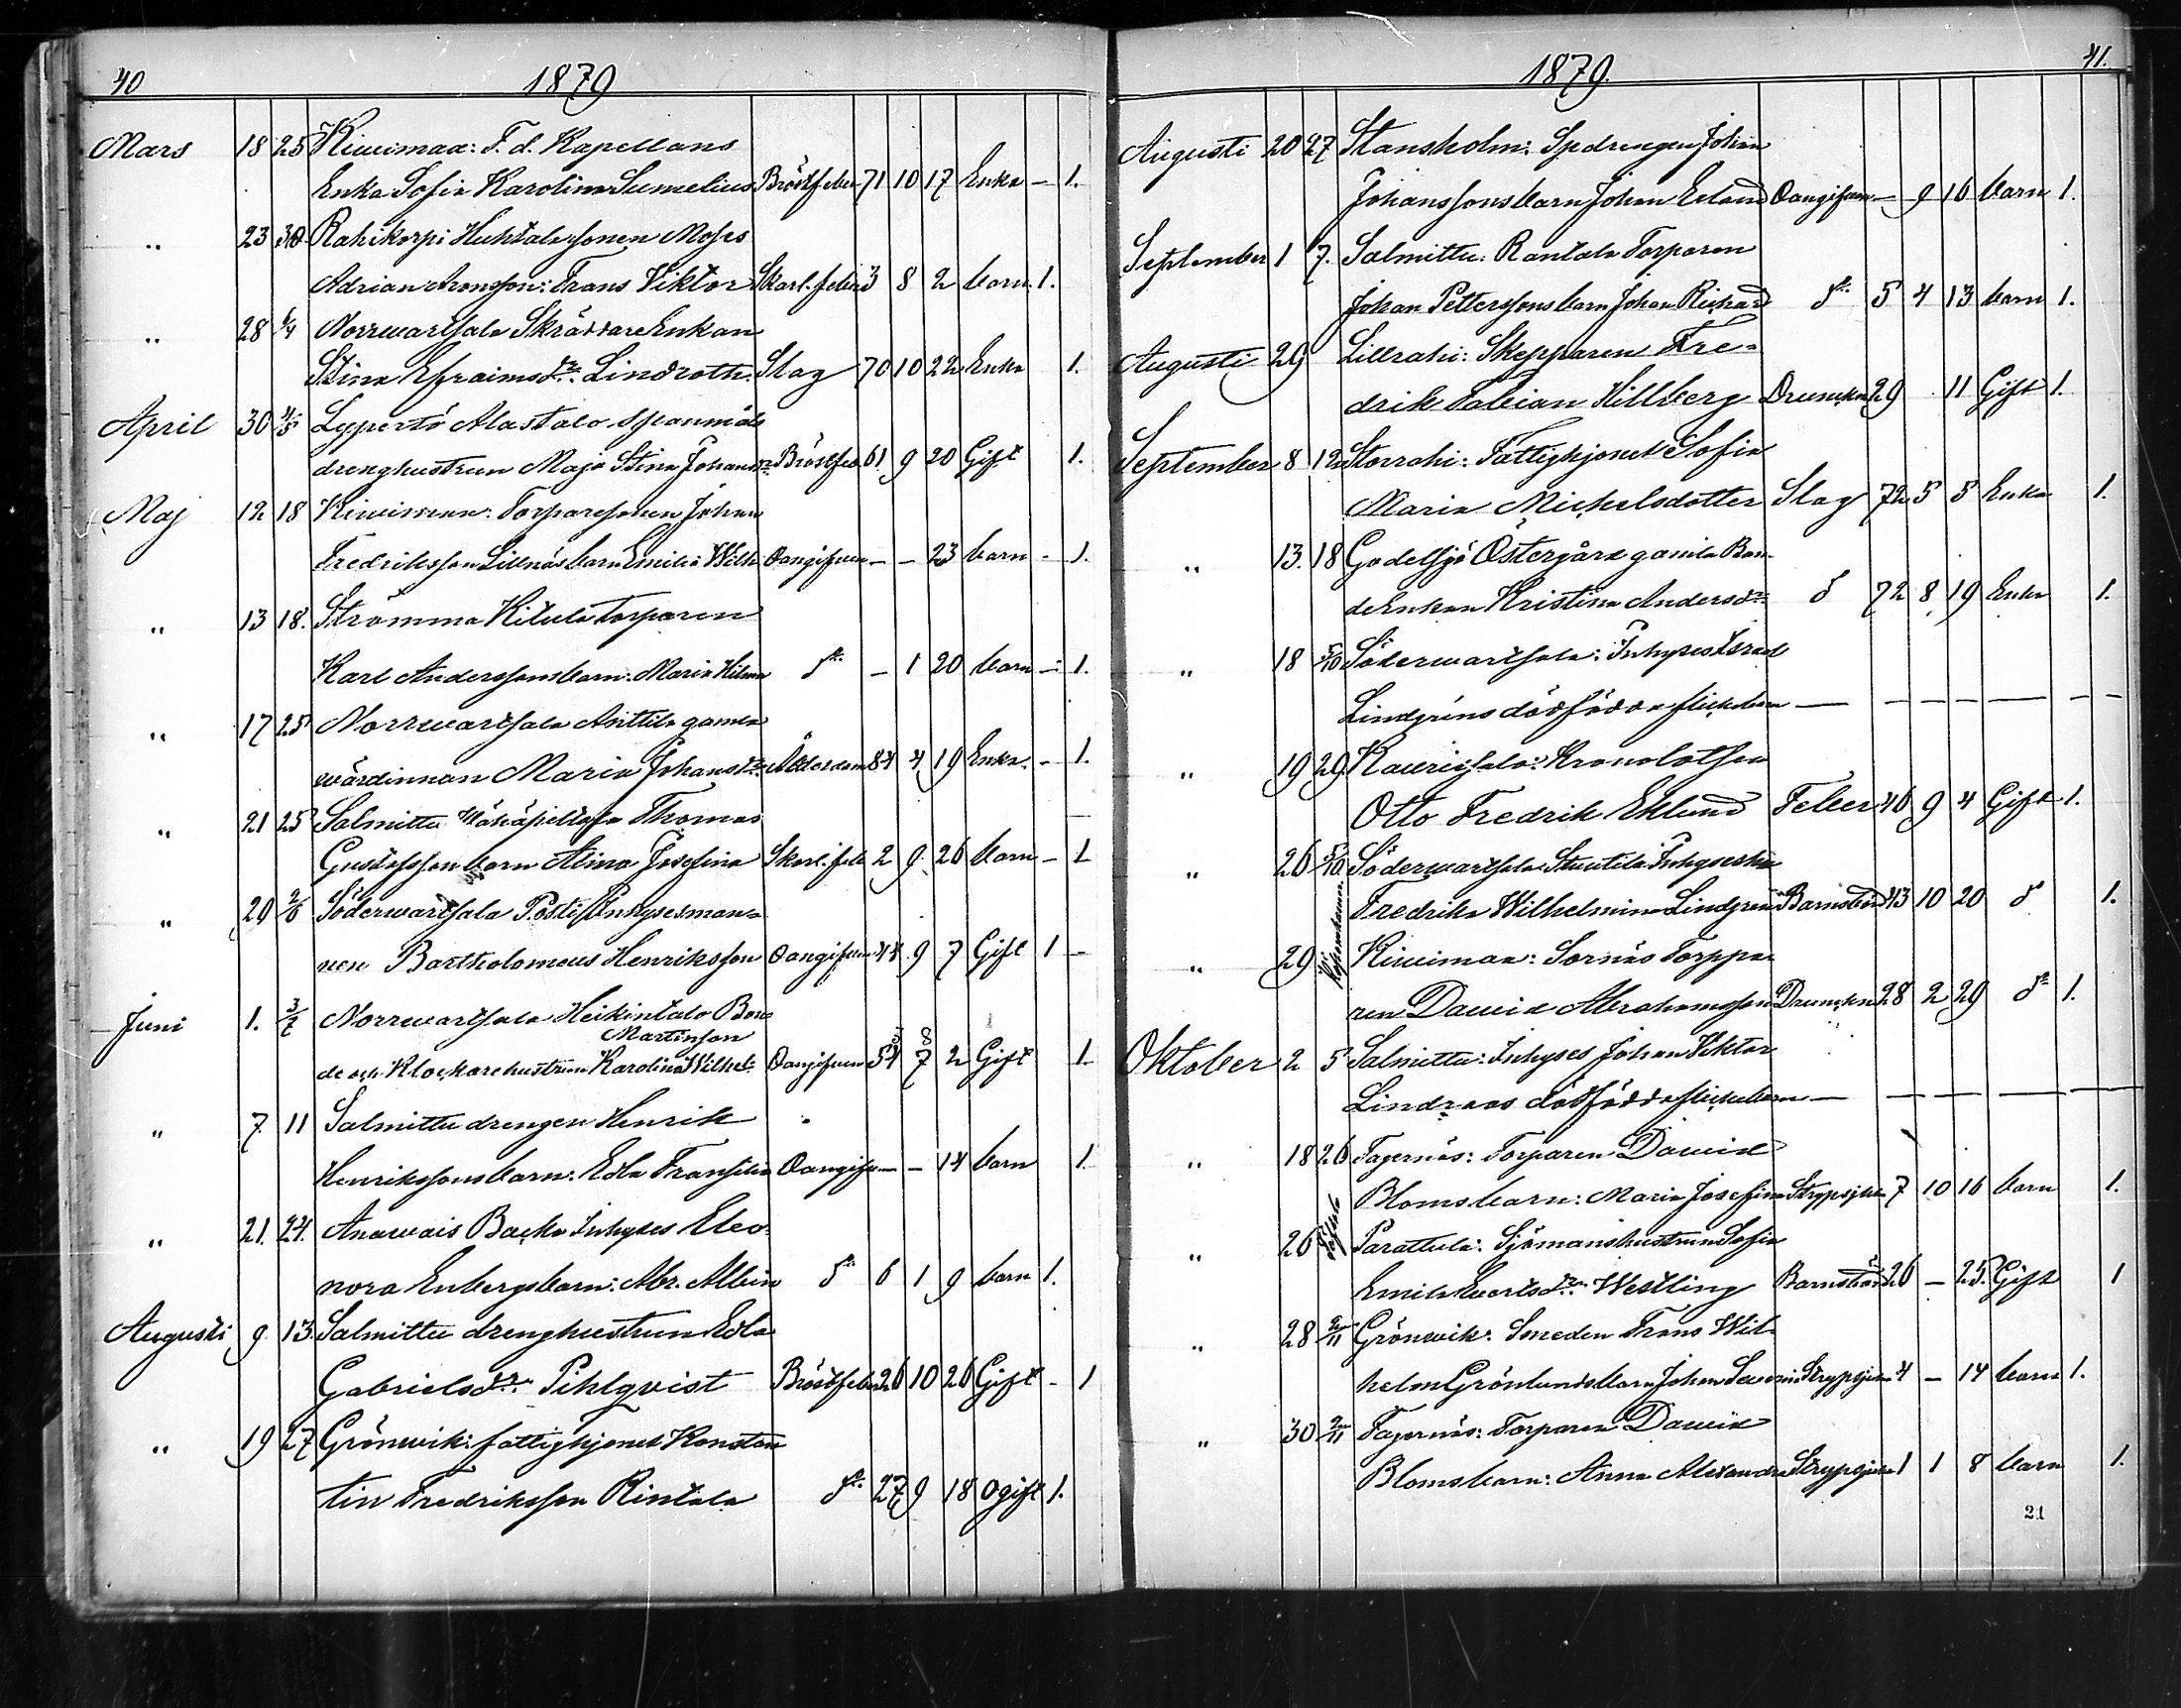 40
1879
Mars 18 25 Kiwimaa: F. d. Kapellans
Enka Sofia Karolina Sumelius Bröstfeber 71 10 17 Enka — 1.
„ 23 30 Rahikorpi Huhtala sonen Moses
Adrian Aronsson: Frans Viktor Skarl. feber 3 8 2 barn 1.
„ 28 6/4 Norrwartsala Skräddare Enkan
Stina Efraimsdr. Lindroth. Slag 70 10 22 Enka 1.
April 30 4/5 Lypertö Alastalo
drenghustrun Maja Stina Johansdr. Bröstfeb 61 9 20 Gift 1.
Maj 12 18 Kiwimaa: Torparesonen Johan
Fredriksson Lillnäs barn Emilia Wilh. Oangifven — — 23 barn — 1.
„ 13 18. Strömma Kitula torparen
Karl Anderssons barn: Maria Hilma do — 1 20 barn — 1.
„ 17 25 Norrwartsala Anttila gamla
wärdinnan Maria Johansdr. Ålderdom 84 4 19 Enka. — 1.
„ 21 25 Salmittu Thomas
Gustafsson barn Alma Josefina Skarl. feb 2 9 26 barn — 1
„ 29 2/6 Söderwartsala Posti Inhysesman-
nen Bartholomeus Henriksson Oangifven 44 9 7 Gift 1 —
Juni 1. 3/7 Norrwartsala Heikintalo Bon
Martinson
de och Klockarehustrun Karolina Wilhel. Oangifven 54 7 2 Gift 1.
„ 7 11 Salmittu drengen Henrik
Henrikssons barn: Edla Fransiska Oangifv — — 14 barn 1.
„ 21. 24. Anawais Backa Inhyses Eleo-
nora Enbergs barn: Abr. Albin do 6 1 9 barn 1.
Augusti 9 13. Salmittu drenghustrun Edla
Gabrielsdr. Pihlqvist Bröstfeber 26 10 26 Gift — 1
„ 19 27 Grönwik: fattighjonet Konstan
tin Fredriksson Rintala do 27 9 18 ogift 1.
41.
1879.
Augusti 20 27 Stansholm: Spdrengen Johan
Johanssons barn Johan Erland Oangifven — 9 16 barn 1.
September 1 7. Salmittu: Rantala Torparen
Johan Petterssons barn Johan Richard do 5 4 13 barn 1.
Augusti 29 Lillrahi: Skepparen Fre-
drik Fabian Hillberg Drunkn 29 11 Gift 1.
September 8 12 Storrahi: Fattighjonet Sofia
Maria Michelsdotter Slag 72 5 5 Enka 1.
„ 13. 18 Godelsjö Östergård gamla Bon-
deenkan Kristina Andersdr. do 72 8 19 Enka 1.
„ 18 5/10 Söderwartsala: Inhyses Israel
Lindgrens dödfödda flickebarn — — — — — — —
„ 19 29. Kaurissalo: Kronolotsen
Otto Fredrik Eklund Feber 46 9 4 Gift 1.
„ 26 5/10. Söderwartsala Inhyseshu
Fredrika Wilhelmina Lindgren Barnsbörd 43 10 20 do 1.
„ 29 Köpenhamn Kiwimaa: Sornäs Torppa-
ren Dawid Abrahamsson Drunkn 28 2 29 do 1.
Oktober 2 5 Salmittu: Inhyses Johan Viktor
Lindroos dödfödda flickebarn — — — — —
„ 18 26 Fagernäs: Torparen Dawid
Bloms barn: Maria Josefina Strypsjuka 7 10 16 barn 1.
„ 26 Parattula: Sjömanshustrun Sofia
Emilia Evertsdr. Westling Barnsbörd 26 — 25. Gift 1
„ 28 2/11 Grönwik: Smeden Frans Wil-
helm Grönlunds barn Johan Strypsjuka 4 — 14 barn 1.
„ 30 2/11 Fagernäs: Torparen Dawid
Bloms barn: Anna Alexandra Strypsjuka 1 1 8 barn 1.
21